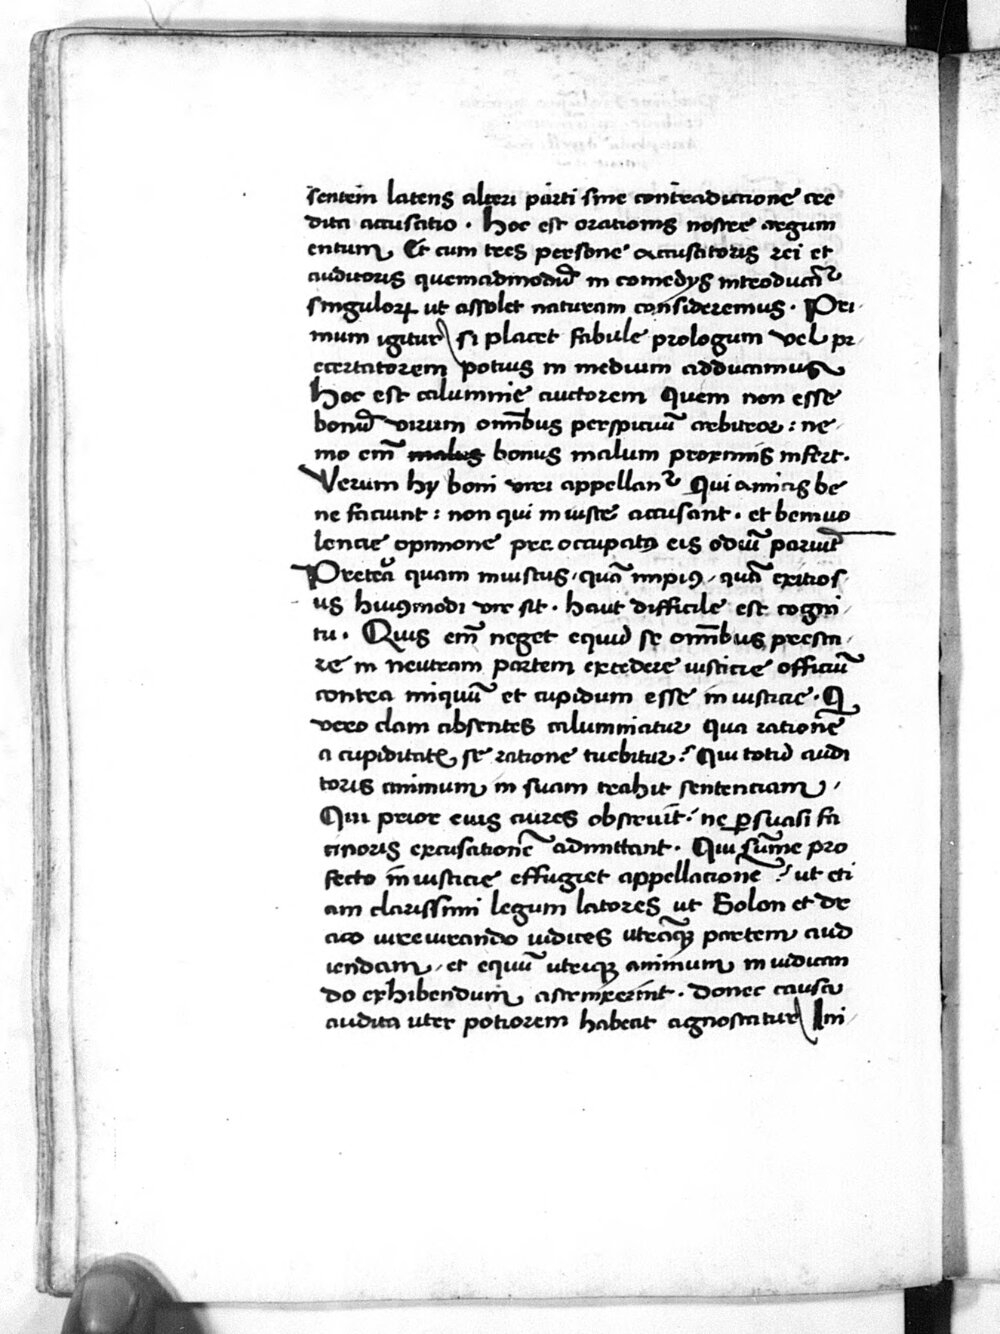 sentem latens alteri parti sine contradictione cre
dita accusatio . Hoc est orationis nostre argum
entum Et cum tres persone accusatoris rei et
auditoris quemadmodū in comedys introducūt᷑
singulorꝝ ut assolet naturam consideremus . Pri
mum igitur si placet fabule prologum vel pr
ecertatorem potius in medium adducamus
Hoc est calumnie auctorem Quem non esse
bonū virum om̄ibus perspicuū arbitror : ne
mo em̄ malus bonus malum proximis infert .
Verum hy boni viri appellant᷑ Qui amicis be
ne faciunt : non qui iniuste accusant . et beniuo
lencie opinione preoccupatꝰ eis odiū pariūt
Pretea᷑ quam iniustus , quā impiꝰ , quā exitios
us huiꝰmodi vir sit . haut difficile est cogni
tu . Quis em̄ neget equū se om̄ibus presta
re in neutram partem excedere iusticie officiū
contra iniquū et cupidum esse iniusticie . Q
vero clam absentes calumniatur Qua ratione
a cupiditate se ratione tuebitur ? Qui totū audi
toris animum in suam trahit sentenciam ,
Qui prior euis aures obstruit . ne ꝑsuasi fa
cinoris excusationē admittant . Qui sūme pro
fecto iniusticie effugiet appellacionē ? ut eti
am clarissimi legum latores ut Solon et dr
aco iureiurando iudices utrāqꝫ partem aud
iendam , et equū utriqꝫ animum in iudican
do exhibendum astrinxerint . donec causa
audita uter potiorem habeat agnoscatur Ini